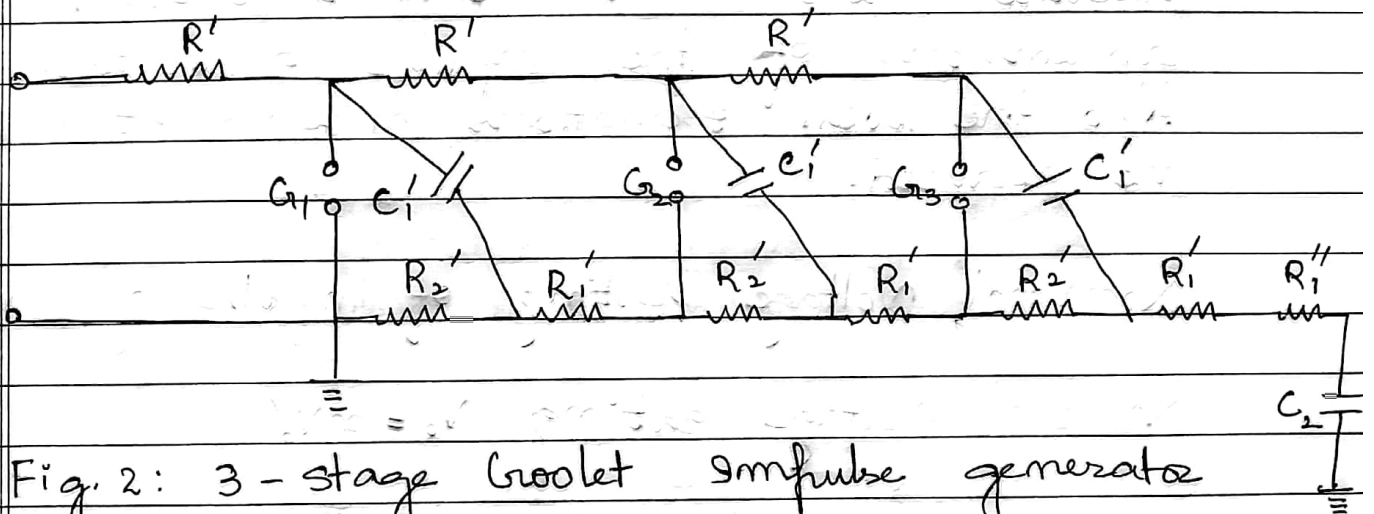 R' R' R'
G1 C1' G2 C1' G3 C1'
R2' R1' R2' R1' R2' R1' R1''
C2
Fig. 2: 3 - stage Goolet Impulse generator